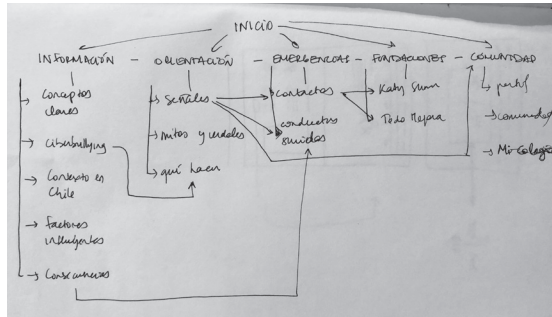 INICIO
INFORMACIÓN - ORIENTACIÓN - EMERGENCIAS - FUNDACIONES - COMUNIDAD
Conceptos claves
Ciberbullying
Contexto en Chile
Factores influyentes
Consecuencias
Señales
mitos y verdades
qué hacer
contactos
conductas suicidas
Katy
Todo Mejora
comunidad
Mi colegio